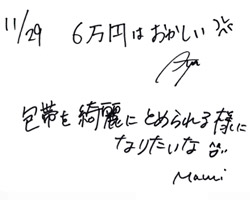 11/29 6万円はおかしい
Aya
包帯を綺麗にとめられる様に
なりたいな
Mami